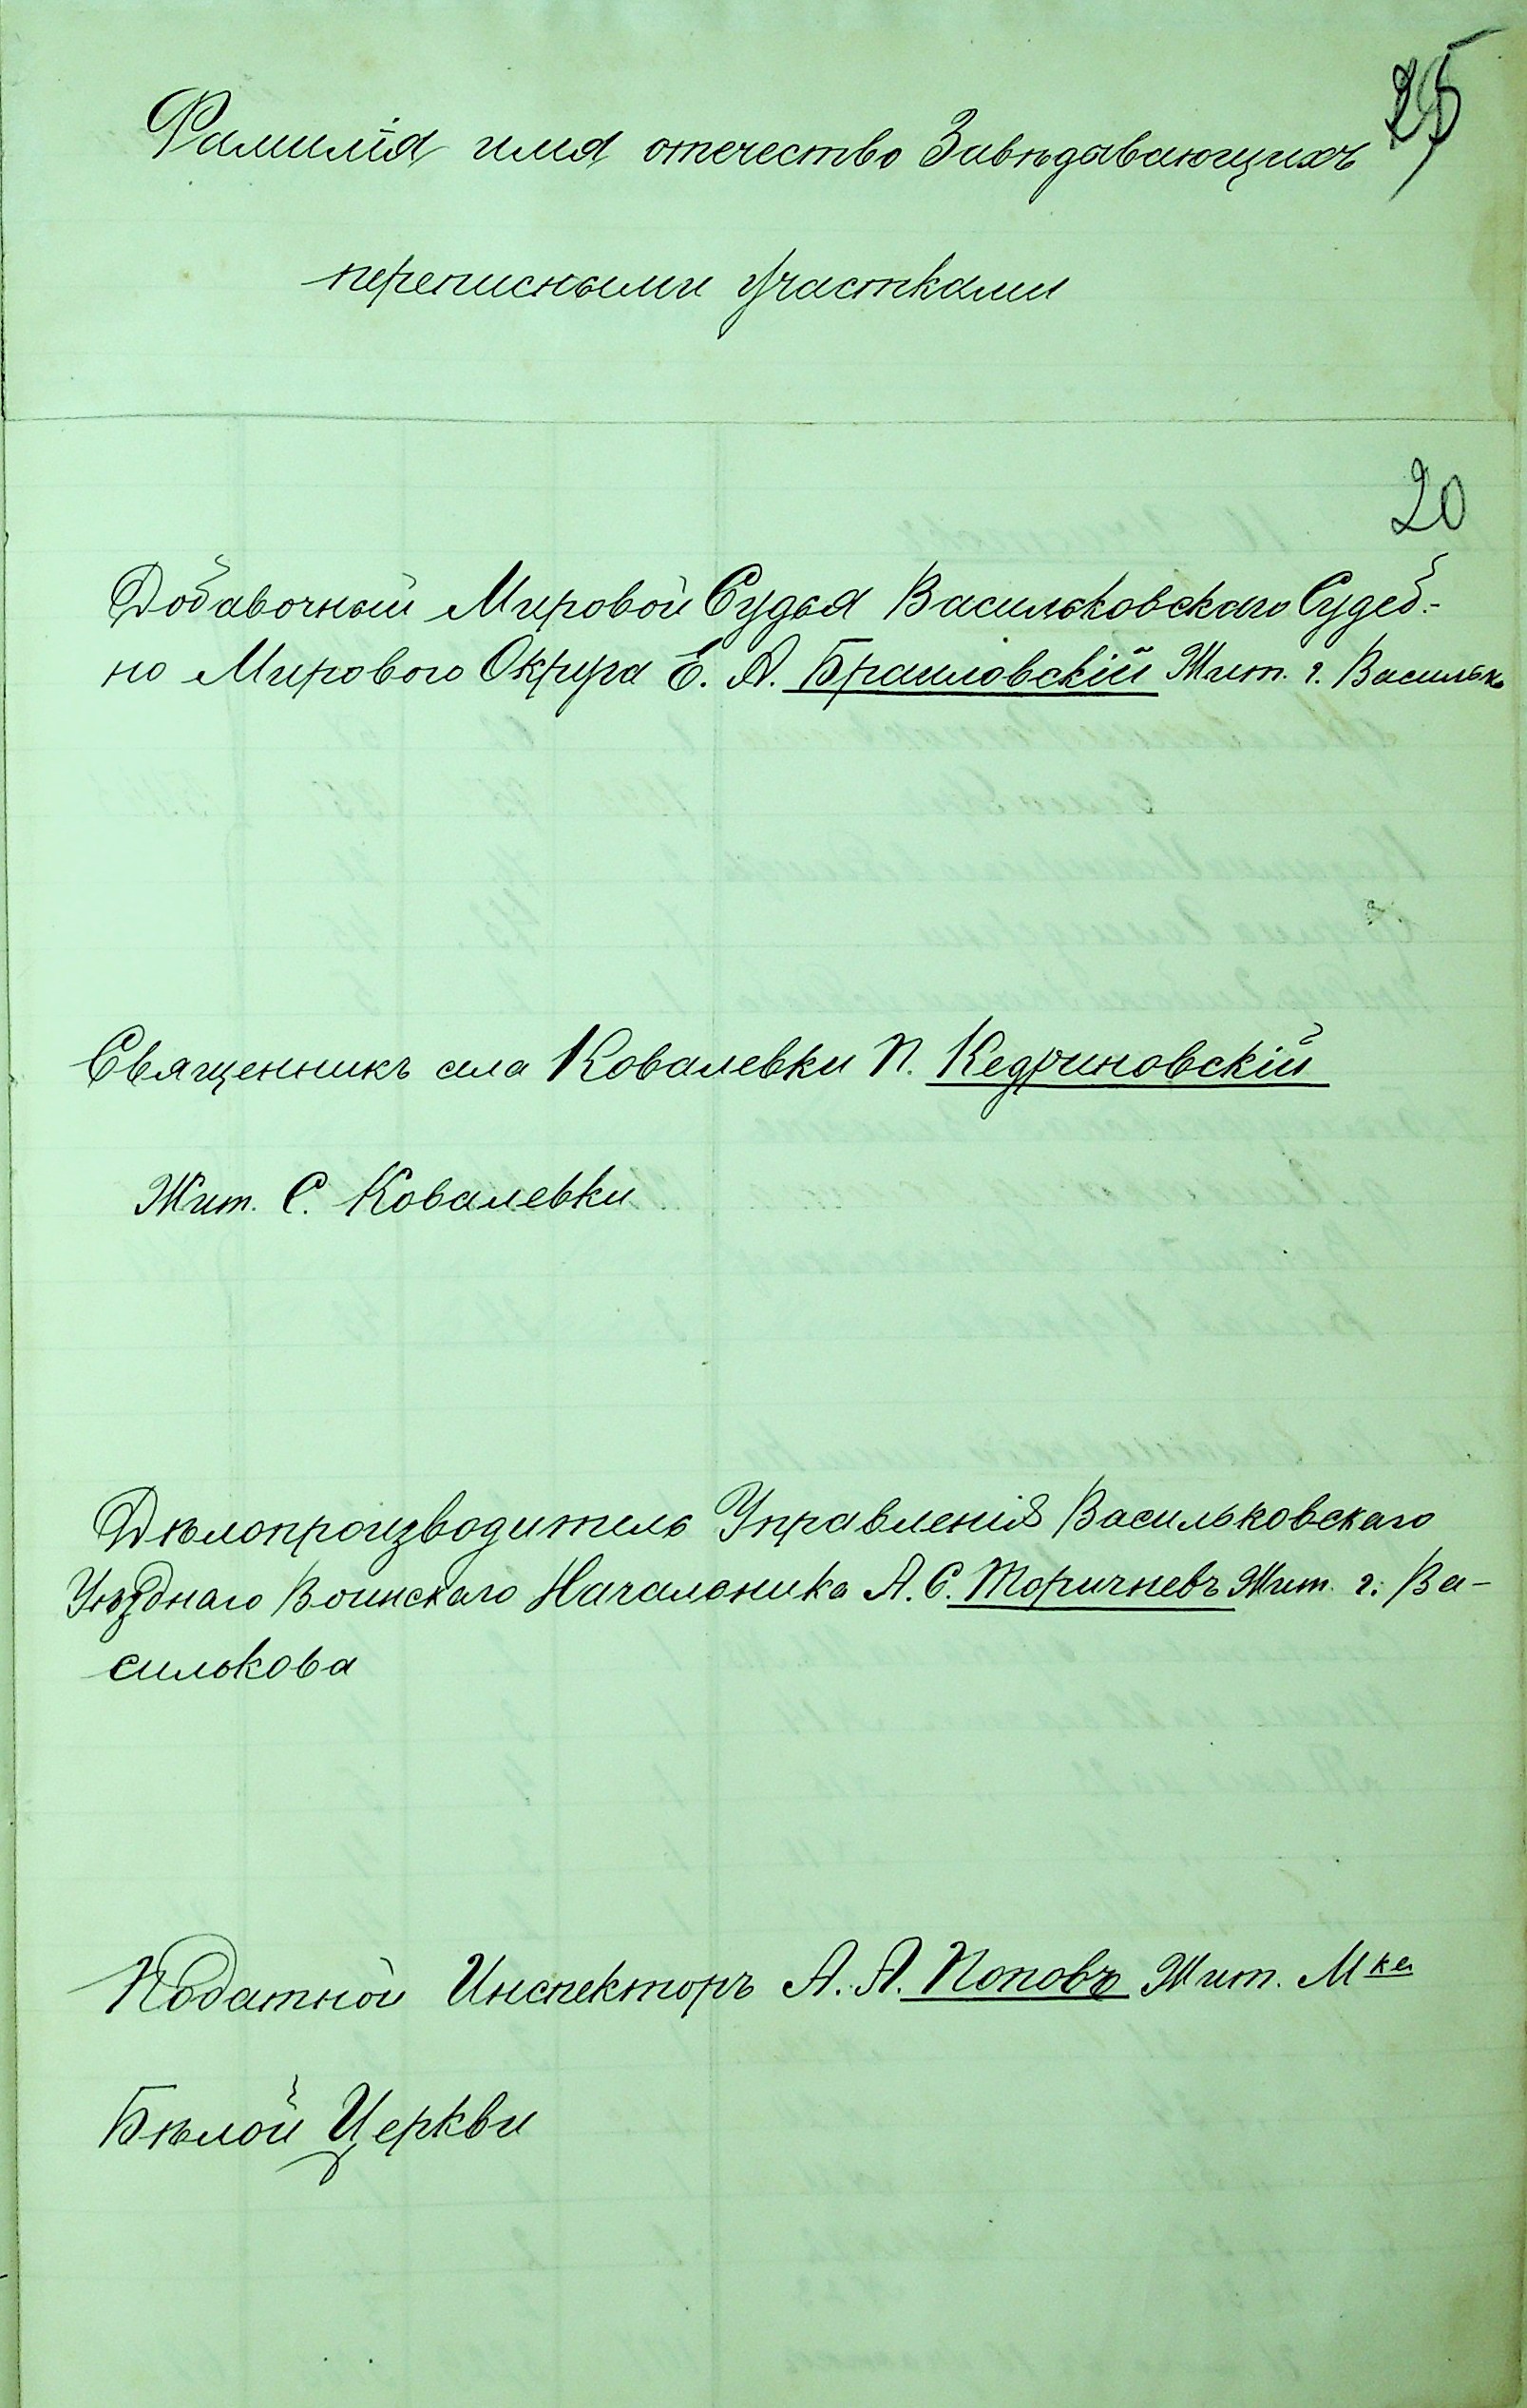 25
Фамилія имя отечество Завѣдывающихъ
переписными участками
20
Добавочный Мировой Судья Васильковскаго Судеб-
но Мирового Округа Е. А. Браиловскій Жит. г. Васильк
Священникъ села Ковалевки П. Кедриновскій
Жит. С. Ковалевки
Дѣлопроизводитель Управленія Васильковскаго
Уѣзднаго Воинскаго Начальника А. С. Торичневъ Жит. г. Ва-
силькова
Податной Инспекторъ А. А. Поповъ Жит. Мка
Бѣлой Церкви